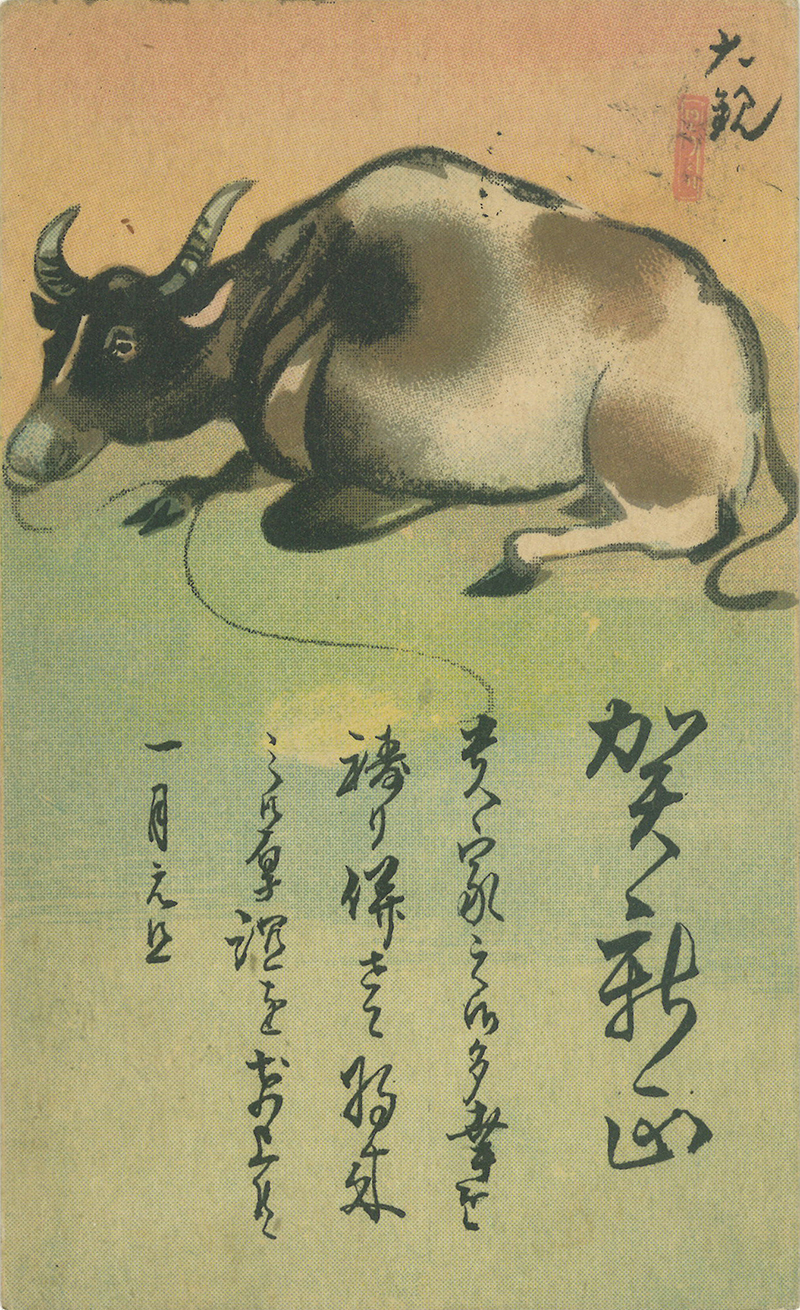 大観
賀新正
貴家之御多幸を
祷り併せて将来
之御厚誼を願上候
一月元旦